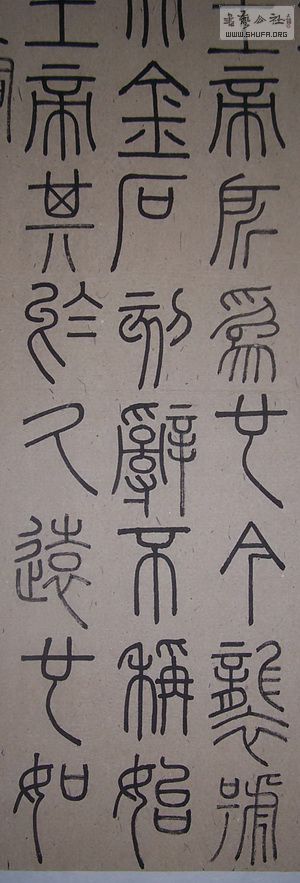 皇帝所為也今襲號
金石刻辭不稱始
皇帝其於久遠也如
书艺公社
WWW.SHUFA.ORG